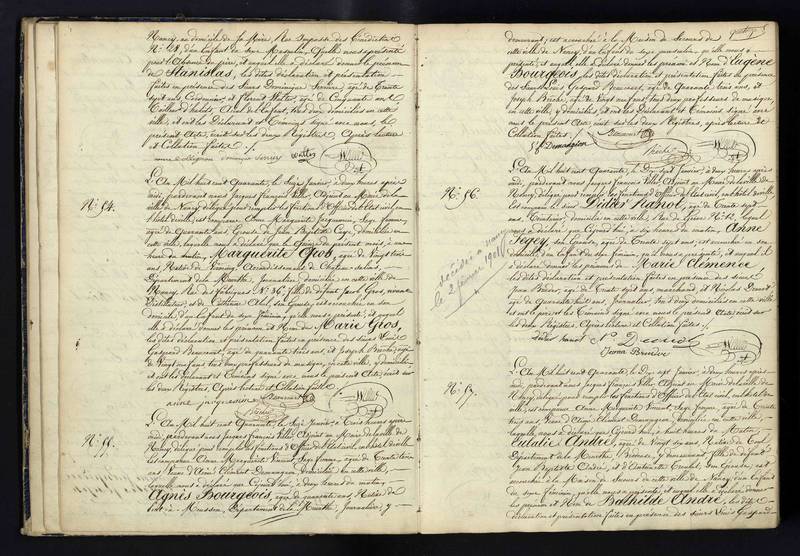 Nancy, au domicile de sa Mère, Rue Impasse des Bénédictins
N° 28, d'un Enfant du sexe Masculin, qu'elle nous a présenté
et auquel elle a déclaré donner le prénom
de Stanislas, les dites déclaration et présentation
faites en présence des Sieurs Dominique Serrier, âgé de Trente
sept ans, Cordonnier, et Florent Walter, âgé de Cinquante ans
domiciliés en cette
ville, et ont les Déclarant et Témoins signé avec nous, le
présent Acte, écrit sur les deux Registres, Après lecture
et Collation faites ./.
dominique Serrier Walter
N° 54.
L'An Mil huit cent Quarante, le Seize Janvier, à deux heures après
midi, pardevant nous Jacques François Villez, Adjoint au Maire de la
ville de Nancy, délégué pour remplir les fonctions d'Officier de l'Etat civil, en
l'hôtel de ville, est comparue Anne Marguerite Jacquemin, Sage femme,
âgée de Quarante ans, Epouse de Jean Baptiste Coqs, domiciliée en
cette ville, laquelle nous a déclaré que le Quinze du présent mois, à une
heure du matin, Marguerite Grob, âgée de Vingt trois
ans, Native de Viviers, Arrondissement de Château-salins,
Département de la Meurthe, Journalière, domiciliée en cette ville de
Nancy, Rue des fabriques N° 36, fille de défunt Jean Gros, vivant
Distillateur, et de Catherine, son Epouse, est accouchée en son
domicile, d'un Enfant du sexe féminin, qu'elle nous a présenté, et auquel
elle a déclaré donner les prénom et Nom de Marie Gros,
les dites déclaration et présentation faites en présence des sieurs Louis
Gaspard Beaucourt, âgé de quarante trois ans, et Joseph Briche, âgé
de Vingt neuf ans, tous deux professeurs de musique, en cette ville, y domiciliés,
et ont les déclarant et Témoins signé avec nous le présent Acte, écrit sur
les deux Registres, Après lecture et Collation faites ./.
anne jacquemin Beaucourt
Briche
N° 55.
L'An Mil huit cent Quarante, le Seize Janvier, à Trois heures après
midi, pardevant nous Jacques François Villez, Adjoint au Maire de la ville de
Nancy, délégué pour remplir les fonctions d'Officier de l'Etat civil, en l'hôtel de ville
est comparue Anne Marguerite Vincent, Sage femme, âgée de Trente trois
ans, Veuve d'Aimé Clément Demangeon, domiciliée en cette ville,
laquelle nous a déclaré que Cejourd'hui, à deux heures du matin,
Agnès Bourgeois, âgée de quarante ans, Native de
Département de la Meurthe, Journalière, y
demeurant, est accouchée à la Maison de Secours de
cette ville de Nancy, d'un Enfant du sexe masculin, qu'elle nous a
présenté, et auquel elle a déclaré donner les prénom et Nom d'Eugène
Bourgeois, les dites déclaration et présentation faites en présence
des Sieurs Louis Gaspard Beaucourt, âgé de Quarante trois ans, et
Joseph Briche, âgé de Vingt neuf ans, tous deux professeurs de musique,
en cette ville, y domiciliés, et ont les Déclarant et Témoins signé avec
nous le présent Acte, écrit sur les deux Registres, après lecture et
Collation faites ./.
Beaucourt
Ve Demangeon
Briche
N° 56.
L'An Mil huit cent Quarante, le Dix sept Janvier, à Deux heures après
midi, pardevant nous Jacques François Villez, Adjoint au Maire de la ville de
Nancy, délégué pour remplir les fonctions d'Officier de l'Etat civil, en l'hôtel de ville
est comparu le sieur Didier Hanol, âgé de Trente sept
ans, domicilié en cette ville, Rue de Grève N° 12, lequel
nous a déclaré que Cejourd'hui, à six heures du matin, Anne
Pegey, son Epouse, âgée de Trente sept ans, est accouchée en son
domicile, d'un Enfant du sexe féminin, qu'il nous a présenté, et auquel il
a déclaré donner les prénoms de Marie Clémence
les dites déclaration et présentation faites en présence des sieurs
Jean Brider, âgé de Trente sept ans, marchand, et Nicolas Denord
âgé de Quarante huit ans, Journalier, tous deux domiciliés en cette ville
et ont le père et les Témoins signé avec nous le présent Acte, écrit sur
les deux Registres, Après lecture et Collation faites ./.
Didier hanol
décédée à nancy
le 2 Janvier 1901
N° 57.
L'An Mil huit cent Quarante, le Dix sept Janvier, à Deux heures après
midi, pardevant nous Jacques François Villez, Adjoint au Maire de la ville de
Nancy, délégué pour remplir les fonctions d'Officier de l'Etat civil, en l'hôtel de
ville, est comparue Anne Marguerite Vincent, Sage femme, âgée de Trente
trois ans, Veuve d'Aimé Clément Demangeon, domiciliée en cette ville,
laquelle nous a déclaré que Cejourd'hui, à huit heures du Matin,
Eulalie André, âgée de Vingt sept ans, Native de Toul,
Département de la Meurthe, Brodeuse, y demeurant, fille de défunt
Jean Baptiste André, et d'Antoinette, son Epouse, est
accouchée à la Maison de Secours de cette ville de Nancy, d'un Enfant
du sexe féminin, qu'elle nous a présenté, et auquel elle a déclaré donner
les prénom et Nom de Mathilde André, les dites
déclaration et présentation faites en présence des sieurs Louis Gaspard